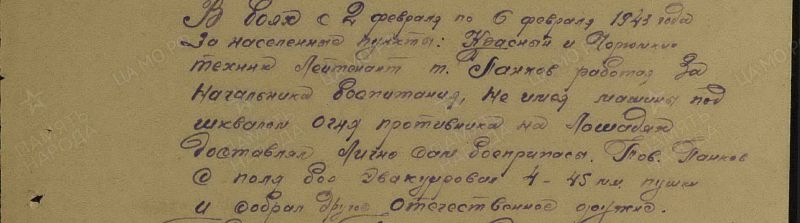 В боях с 2 февраля по 6 февраля 1943 года
За населенные пункты: Красный и
техник Лейтенант т. Панков работая За
Начальника боепитания, не имея машины под
шквалом огня противника на Лошадях
доставлял Лично сам боеприпасы. Тов. Панков
с поля боя Эвакуировал 4 - 45 мм пушки
и собрал другое отечественное оружие.